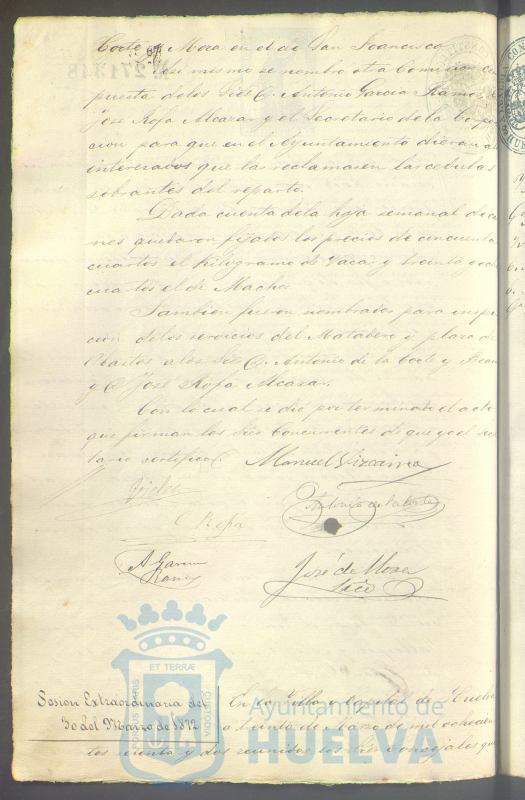 Corte y Mora en el de San Francisco
Asi mismo se nombro otra Comision com
puesta de los Sres D. Antonio Garcia Ramos
José Rofa Alcazar y el Secretario de la Corpo
acion para que en el Ayuntamiento dieran a
interesados que las reclamasen las cedulas
sobrantes del reparto.
Dada cuenta de la hoja semanal de ca
nes quedaron fijados los precios de cincuenta
cuartos el kilogramo de Vaca y treinta y ocho
cuartos el de Macho.
Tambien fueron nombrados para inspe
cion de los servicios del Matadero y plaza de
Abastos a los Sres D. Antonio de la Corte y
y D José Rofa Alcazar.
Con lo cual se dió por terminado el acto
que firman los Sres Concurrentes de que yo el sec
tario certifico.
Manuel Vizcaino
Antonio de la Corte
Rofa
A Garcia
Ramos
José de Mora
Srio
ET TERRAE
PORTUS MARIS
CUSTODIA
Ayuntamiento de
HUELVA
Sesion Extraordinaria del
30 del Marzo de 1872
En la Villa Capital de Huelva
a treinta de Marzo de mil ochocien
tos setenta y dos reunidos los Sres Concejales que